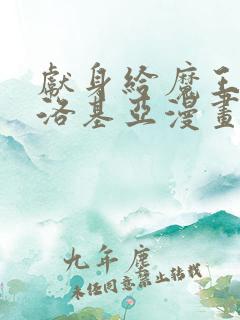 獻身給魔王
洛基亞漫畫
九年塵
未经同意禁止转载